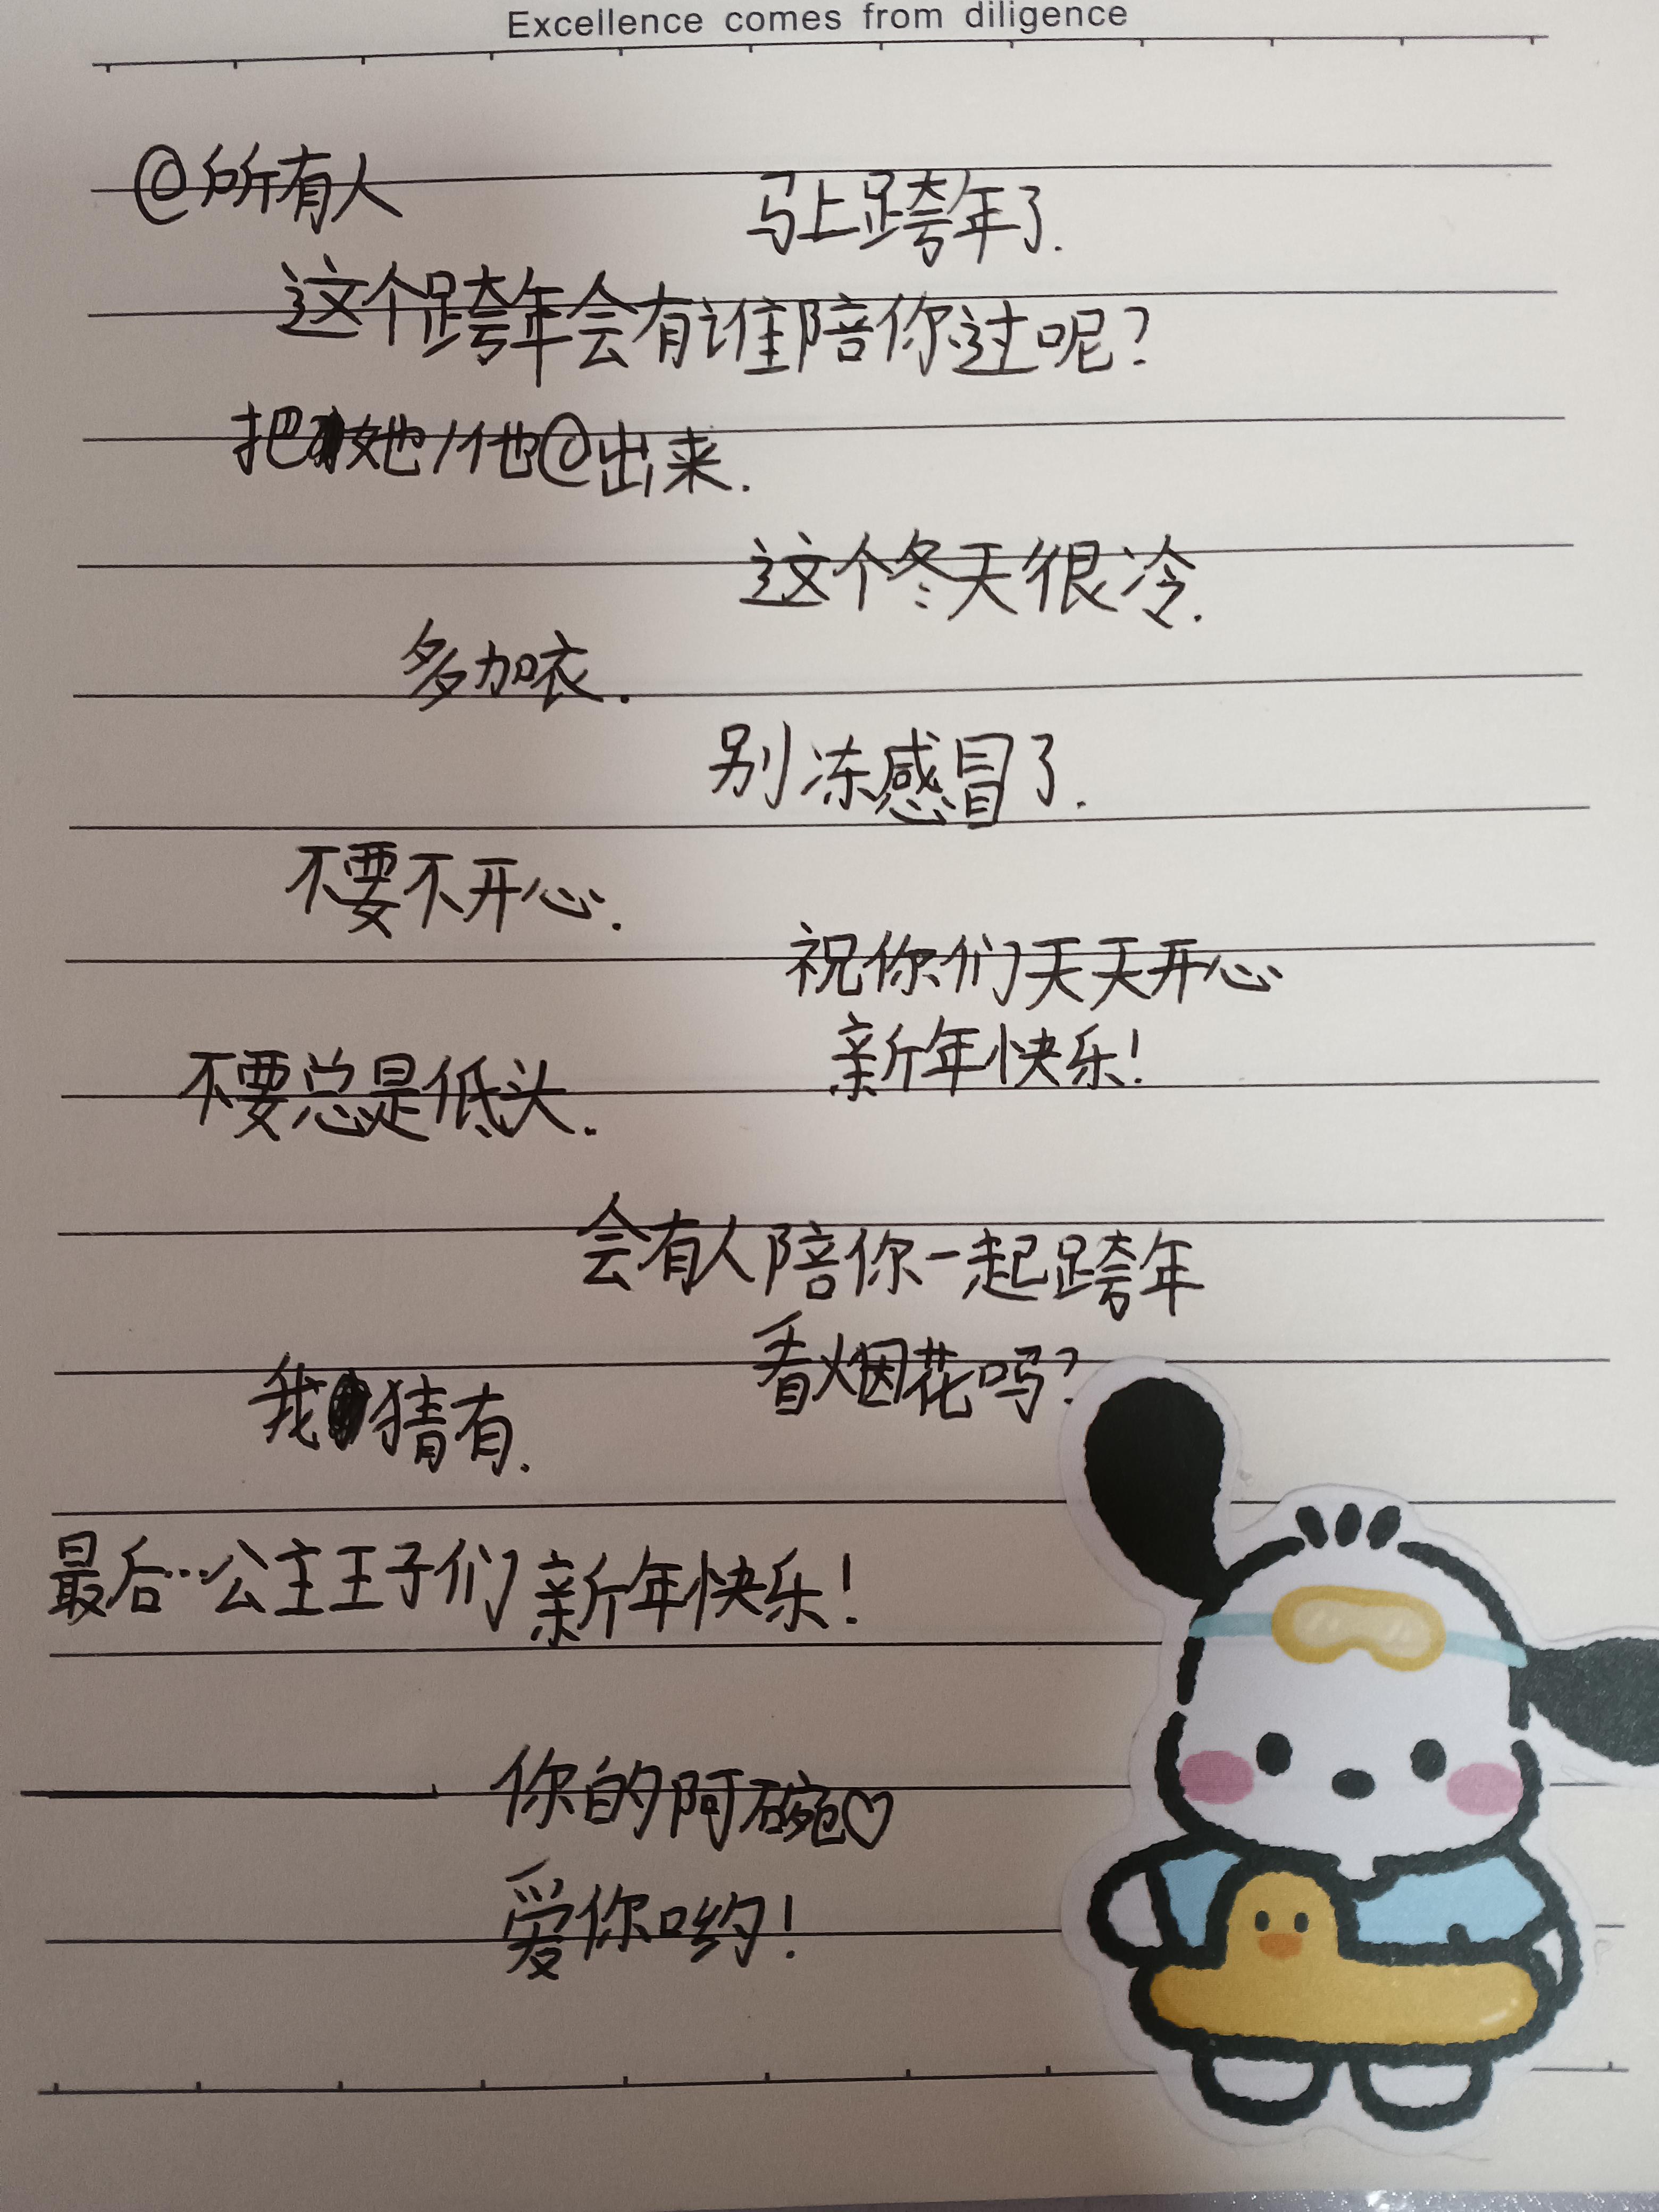 Excellence comes from diligence
@所有人
马上跨年了.
这个跨年会有谁陪你过呢?
把她/他@出来.
这个冬天很冷.
多加衣.
别冻感冒了.
不要不开心.
祝你们天天开心
新年快乐!
不要总是低头.
会有人陪你一起跨年
看烟花吗?
我猜有.
最后…公主王子们新年快乐!
你的阿碗♡
爱你哟!